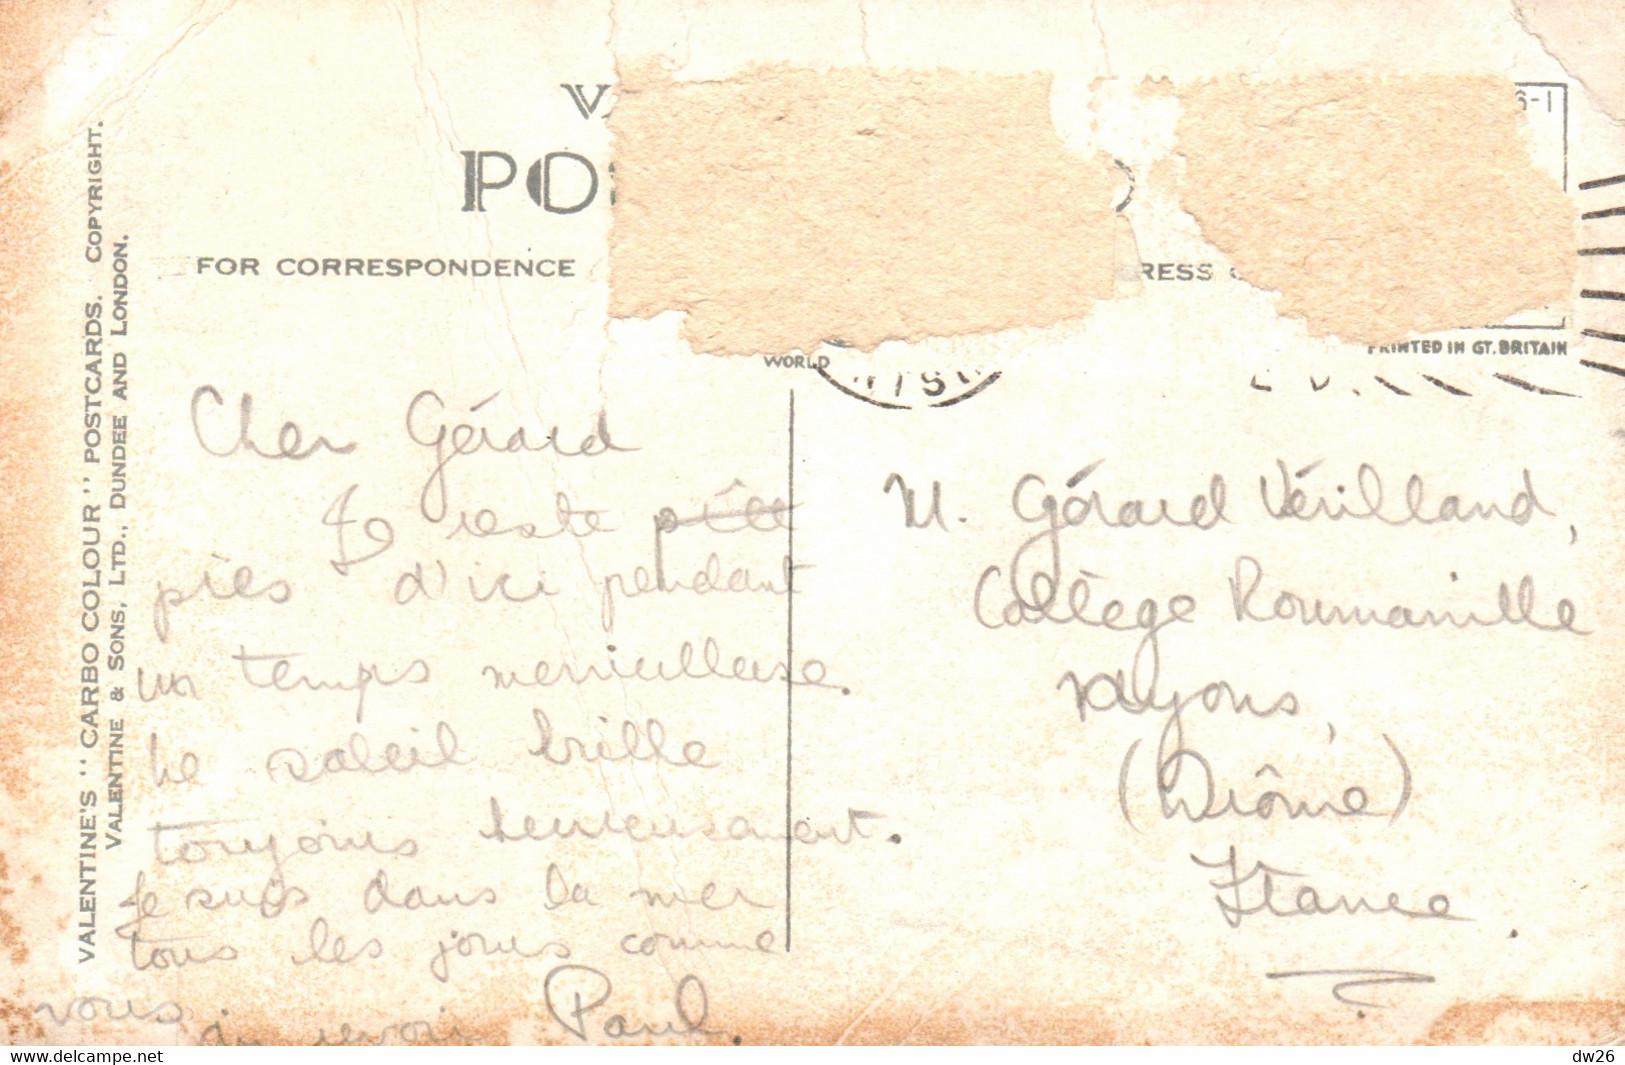 VALENTINE'S "CARBO COLOUR" POSTCARDS. COPYRIGHT.
VALENTINE & SONS, LTD., DUNDEE AND LONDON.
FOR CORRESPONDENCE
RESS
WORLD
PRINTED IN GT. BRITAIN
Cher Gérard
Je reste
près d'ici pendant
un temps merveilleuse.
Le soleil brille
toujours heureusement.
Je suis dans la mer
tous les jours comme
vous
au revoir Paul.
M. Gérard Vérilland,
Collège Roumanille
Nyons,
(Drôme)
France.
www.delcampe.net
dw26